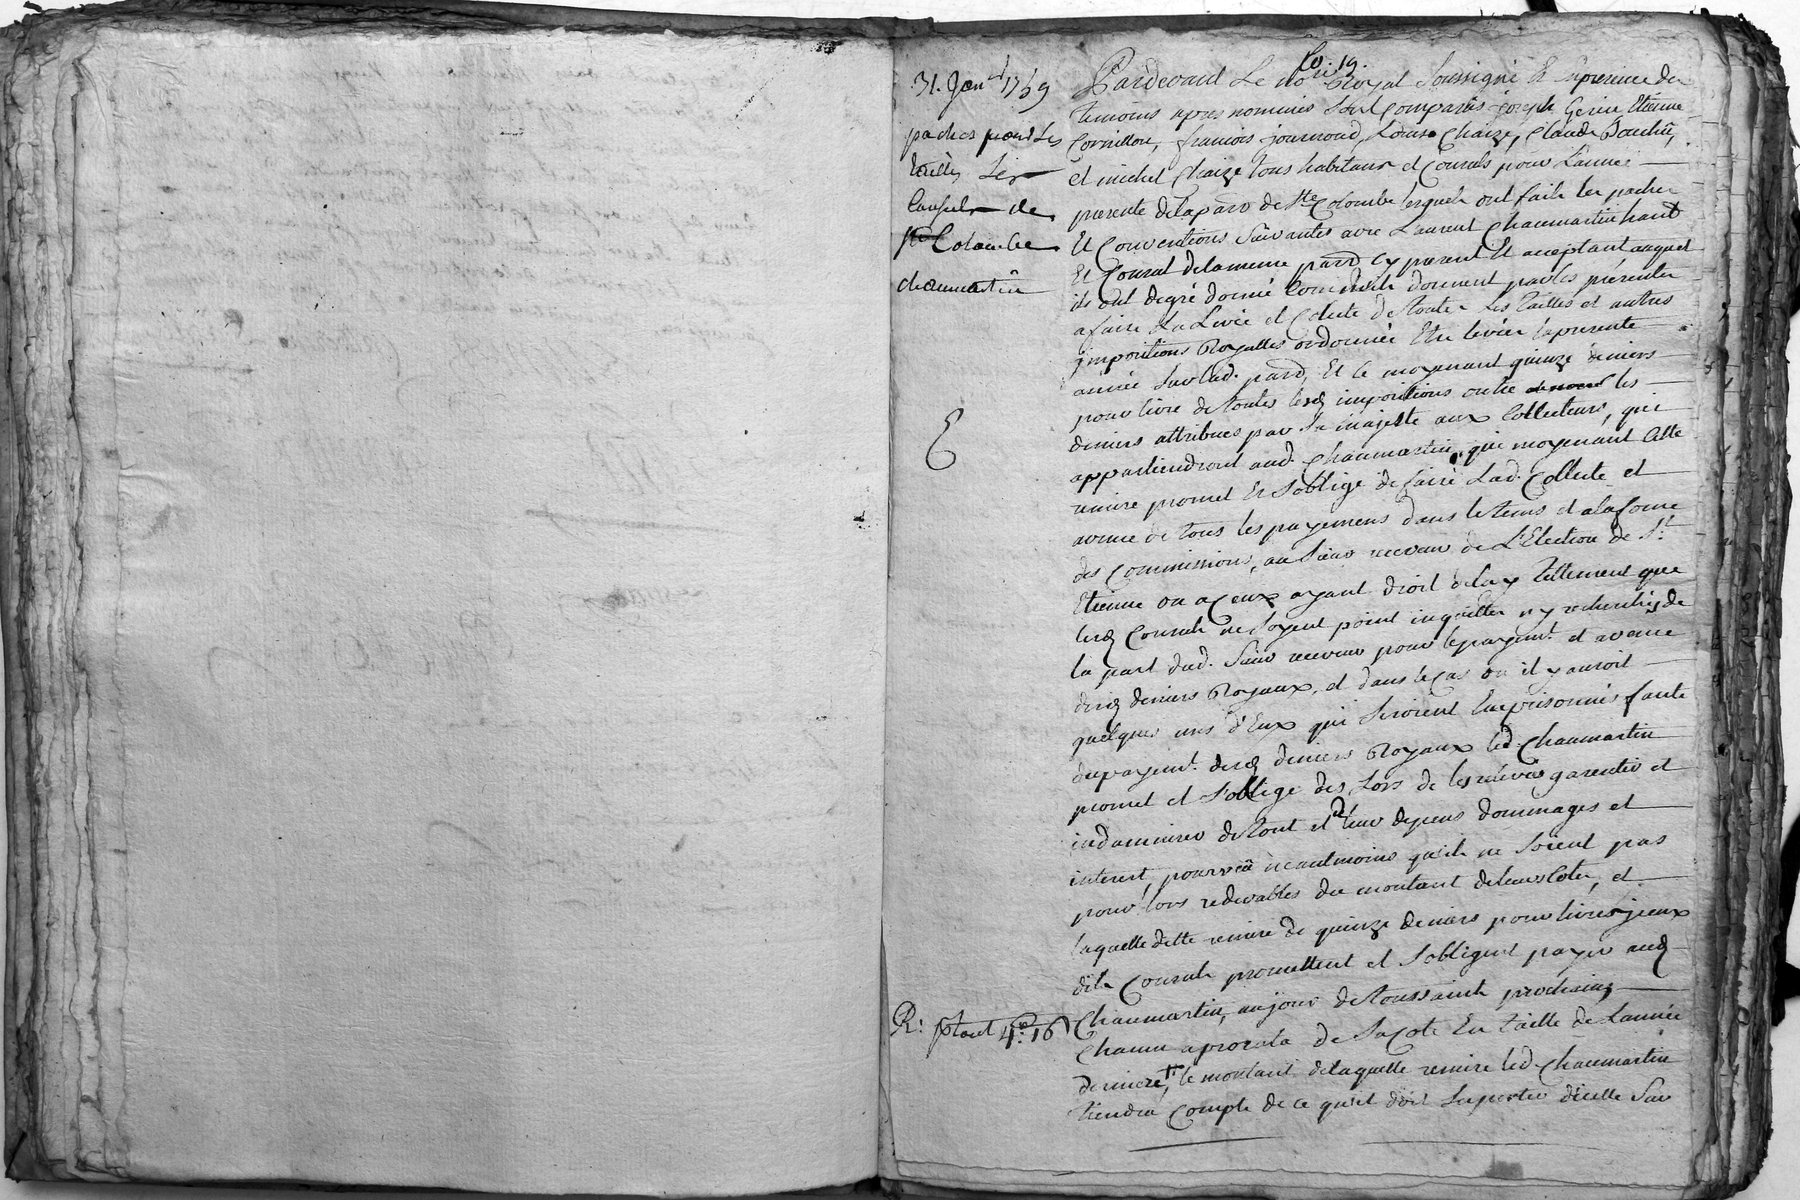 fo. 19.
31. Janr 1759
paches pour Les
tailles Les
Consuls de
Ste Colombe
chaumartin
Pardevant Le nore Royal Soussigné Et En presence des
temoins apres nommés Sont Comparus joseph Gerin Etienne
Cornillon, francois journoud, Chaize, Claude
et michel Chaize tous habitans et Consuls pour L'année
presente de la parr de Ste Colombe lesquels ont fait les paches
Et Conventions Suivantes avec Laurent Chaumartin hant
Et Consul de la meme parr cy present Et acceptant auquel
ils ont de gré donné Comme ils donnent par les presentes
a faire La Levée et Colecte de toutes Les tailles et autres
impositions Royalles ordonnées Etre levées la presente
année Sur lad. parr, Et ce moyenant quinze deniers
pour livre de toutes lesd impositions outre les
deniers attribues par Sa majesté aux Collecteurs, qui
appartiendront aud. Chaumartin, qui moyenant Cette
remise promet Et S'oblige de faire Lad. Collecte et
avance de tous les payemens dans le tems et a la forme
des Commissions, au Sieur receveur de L'Election de St
Etienne ou a Ceux ayant droit de luy tellement que
lesd Consuls ne Soyent point inquiettes ny recherchés de
la part dud. Sieur receveur pour le payemt et avance
desd deniers Royaux, et dans le cas ou il y auroit
quelques uns d'Eux qui Seroient Emprisonnés faute
du payemt desd deniers Royaux led Chaumartin
promet et S'oblige des Lors de les relever garentir et
indamniser de tout et de tous depens dommages et
interest, pourvû neantmoins qu'ils ne Soient pas
pour lors redevables du montant de leurs Cotes, et
laquelle dette remise de quinze deniers pour livres jceux
dits Consuls promettent et S'obligent payer aud
Chaumartin, au jour de toussaints prochains
R: 4: 16
Chacun a prorata de Sa Cote En taille de L'année
derniere, le montant de laquelle remise led Chaumartin
tiendra Compte de ce qu'il doit Suporter d'icelle Sur